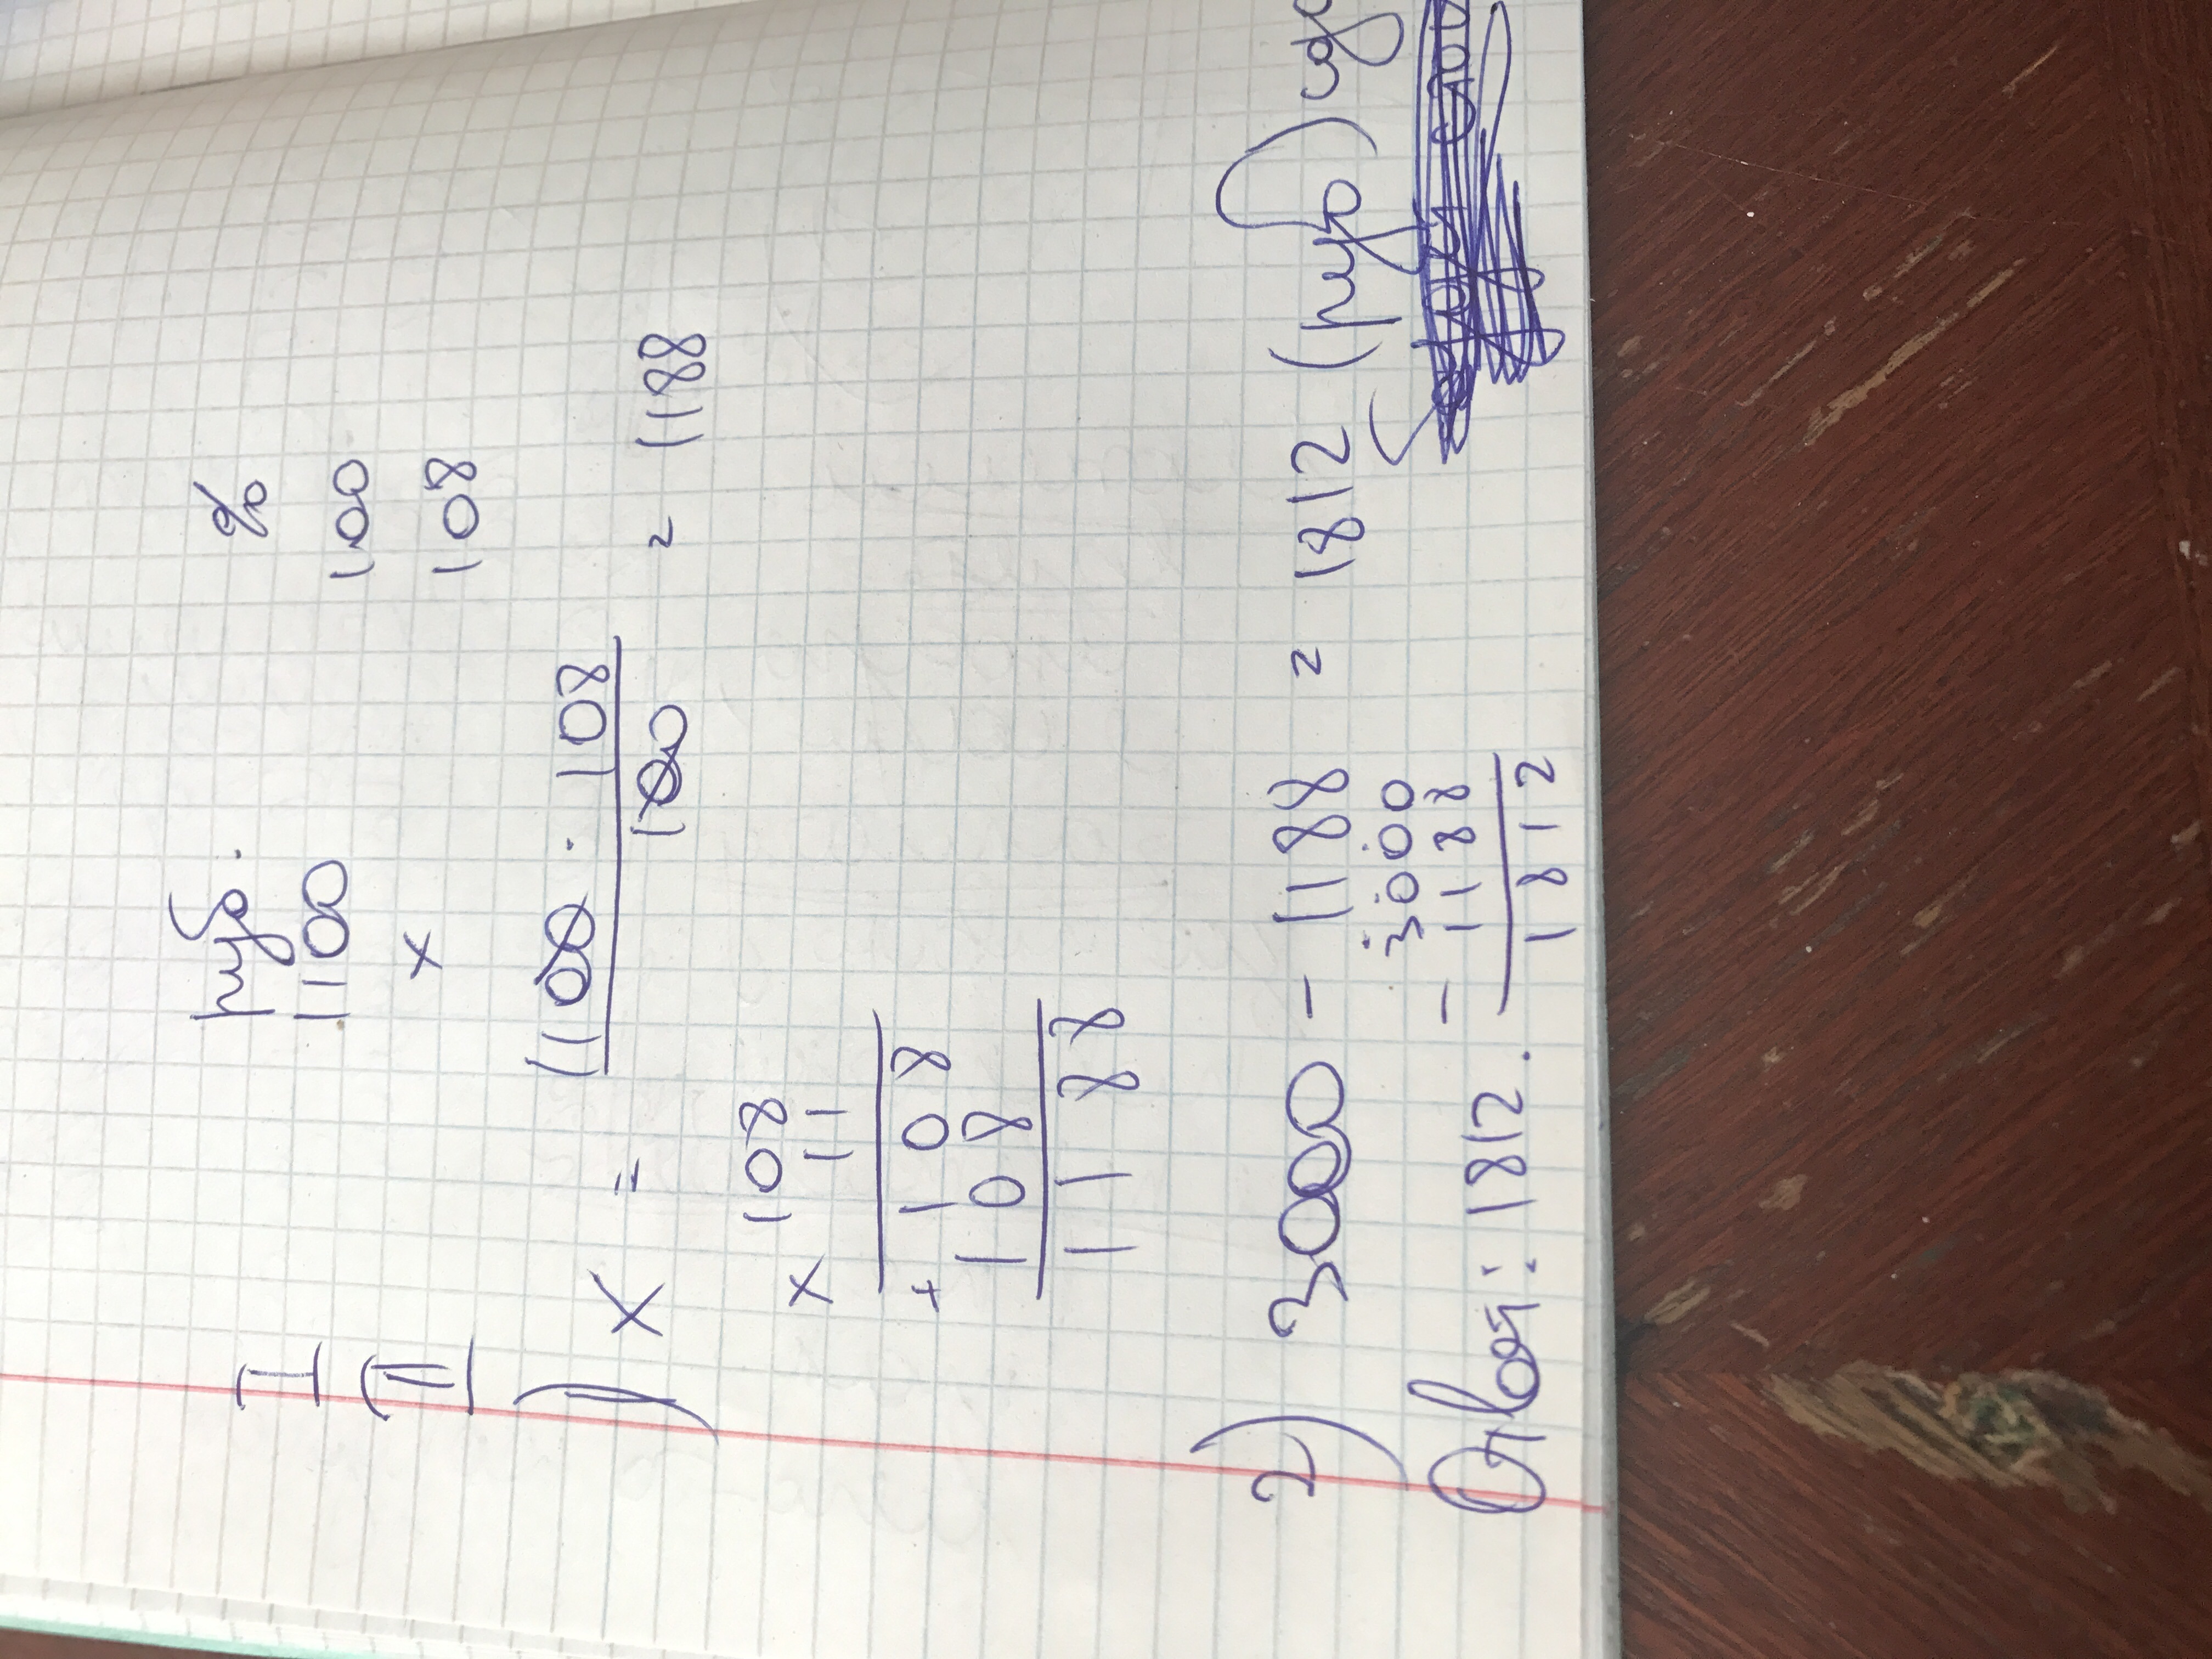 руб. %
I 1100 100
II x 108
1) x = 1100 · 108 / 100 = 1188
× 108
11
+ 108
108
1188
2) 3000 - 1188 = 1812 (руб)
- 3000
1188
1812
Ответ: 1812.